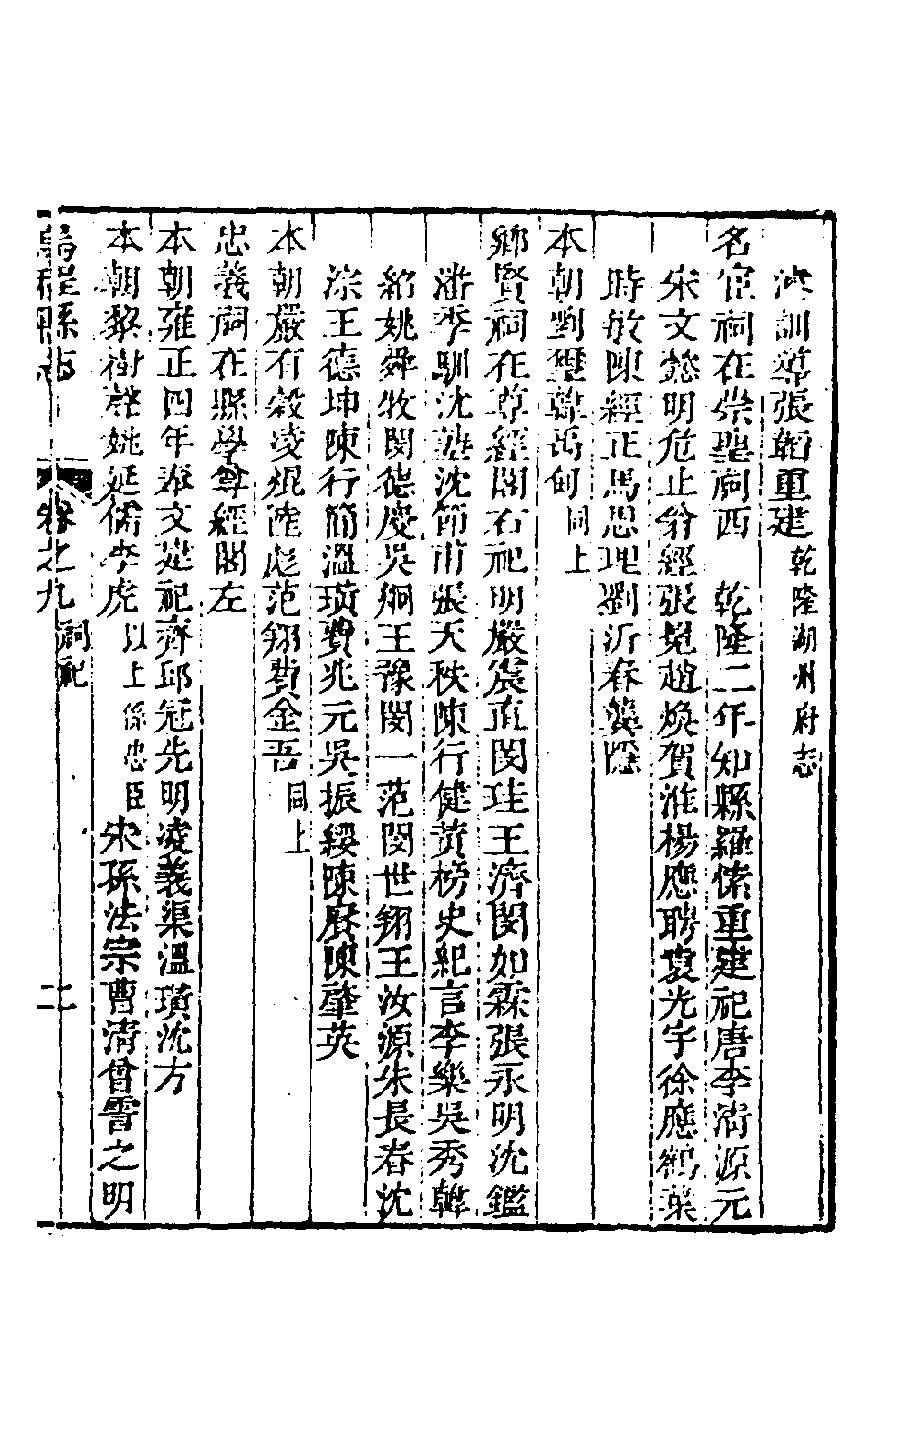 訓導張翰重建乾隆湖州府志
名宦祠在崇聖祠西　乾隆二年知縣羅愫重建祀唐李清源元
宋文懿明危止翁經張冕趙煥賀淮楊應聘袁光宇徐應鶴葉
時敏陳經正馬思理劉沂春龔
本朝劉壓韓禹甸同上
鄉賢祠在尊經閣右祀明嚴震直閔珪王濟閔如霖張永明沈鑑
潘季馴沈塾沈節甫張天秩陳行健黃榜史紀言李樂吳秀韓
紹姚舜牧閔德慶吳炯王豫閔一范閔世翔王汝源朱長春沈
淙王德坤陳行簡溫璜費兆元吳振綬陳展陳肇英
本朝嚴有穀凌焜陸彪范翔費金吾同上
忠義祠在縣學尊經閣左
本朝雍正四年奉文建祀齊邱冠先明凌義渠溫璜沈方
本朝黎樹聲姚延儒李虎以上係忠臣宋孫法宗曹清曾霄之明
烏程縣志　卷之九　祠祀　二